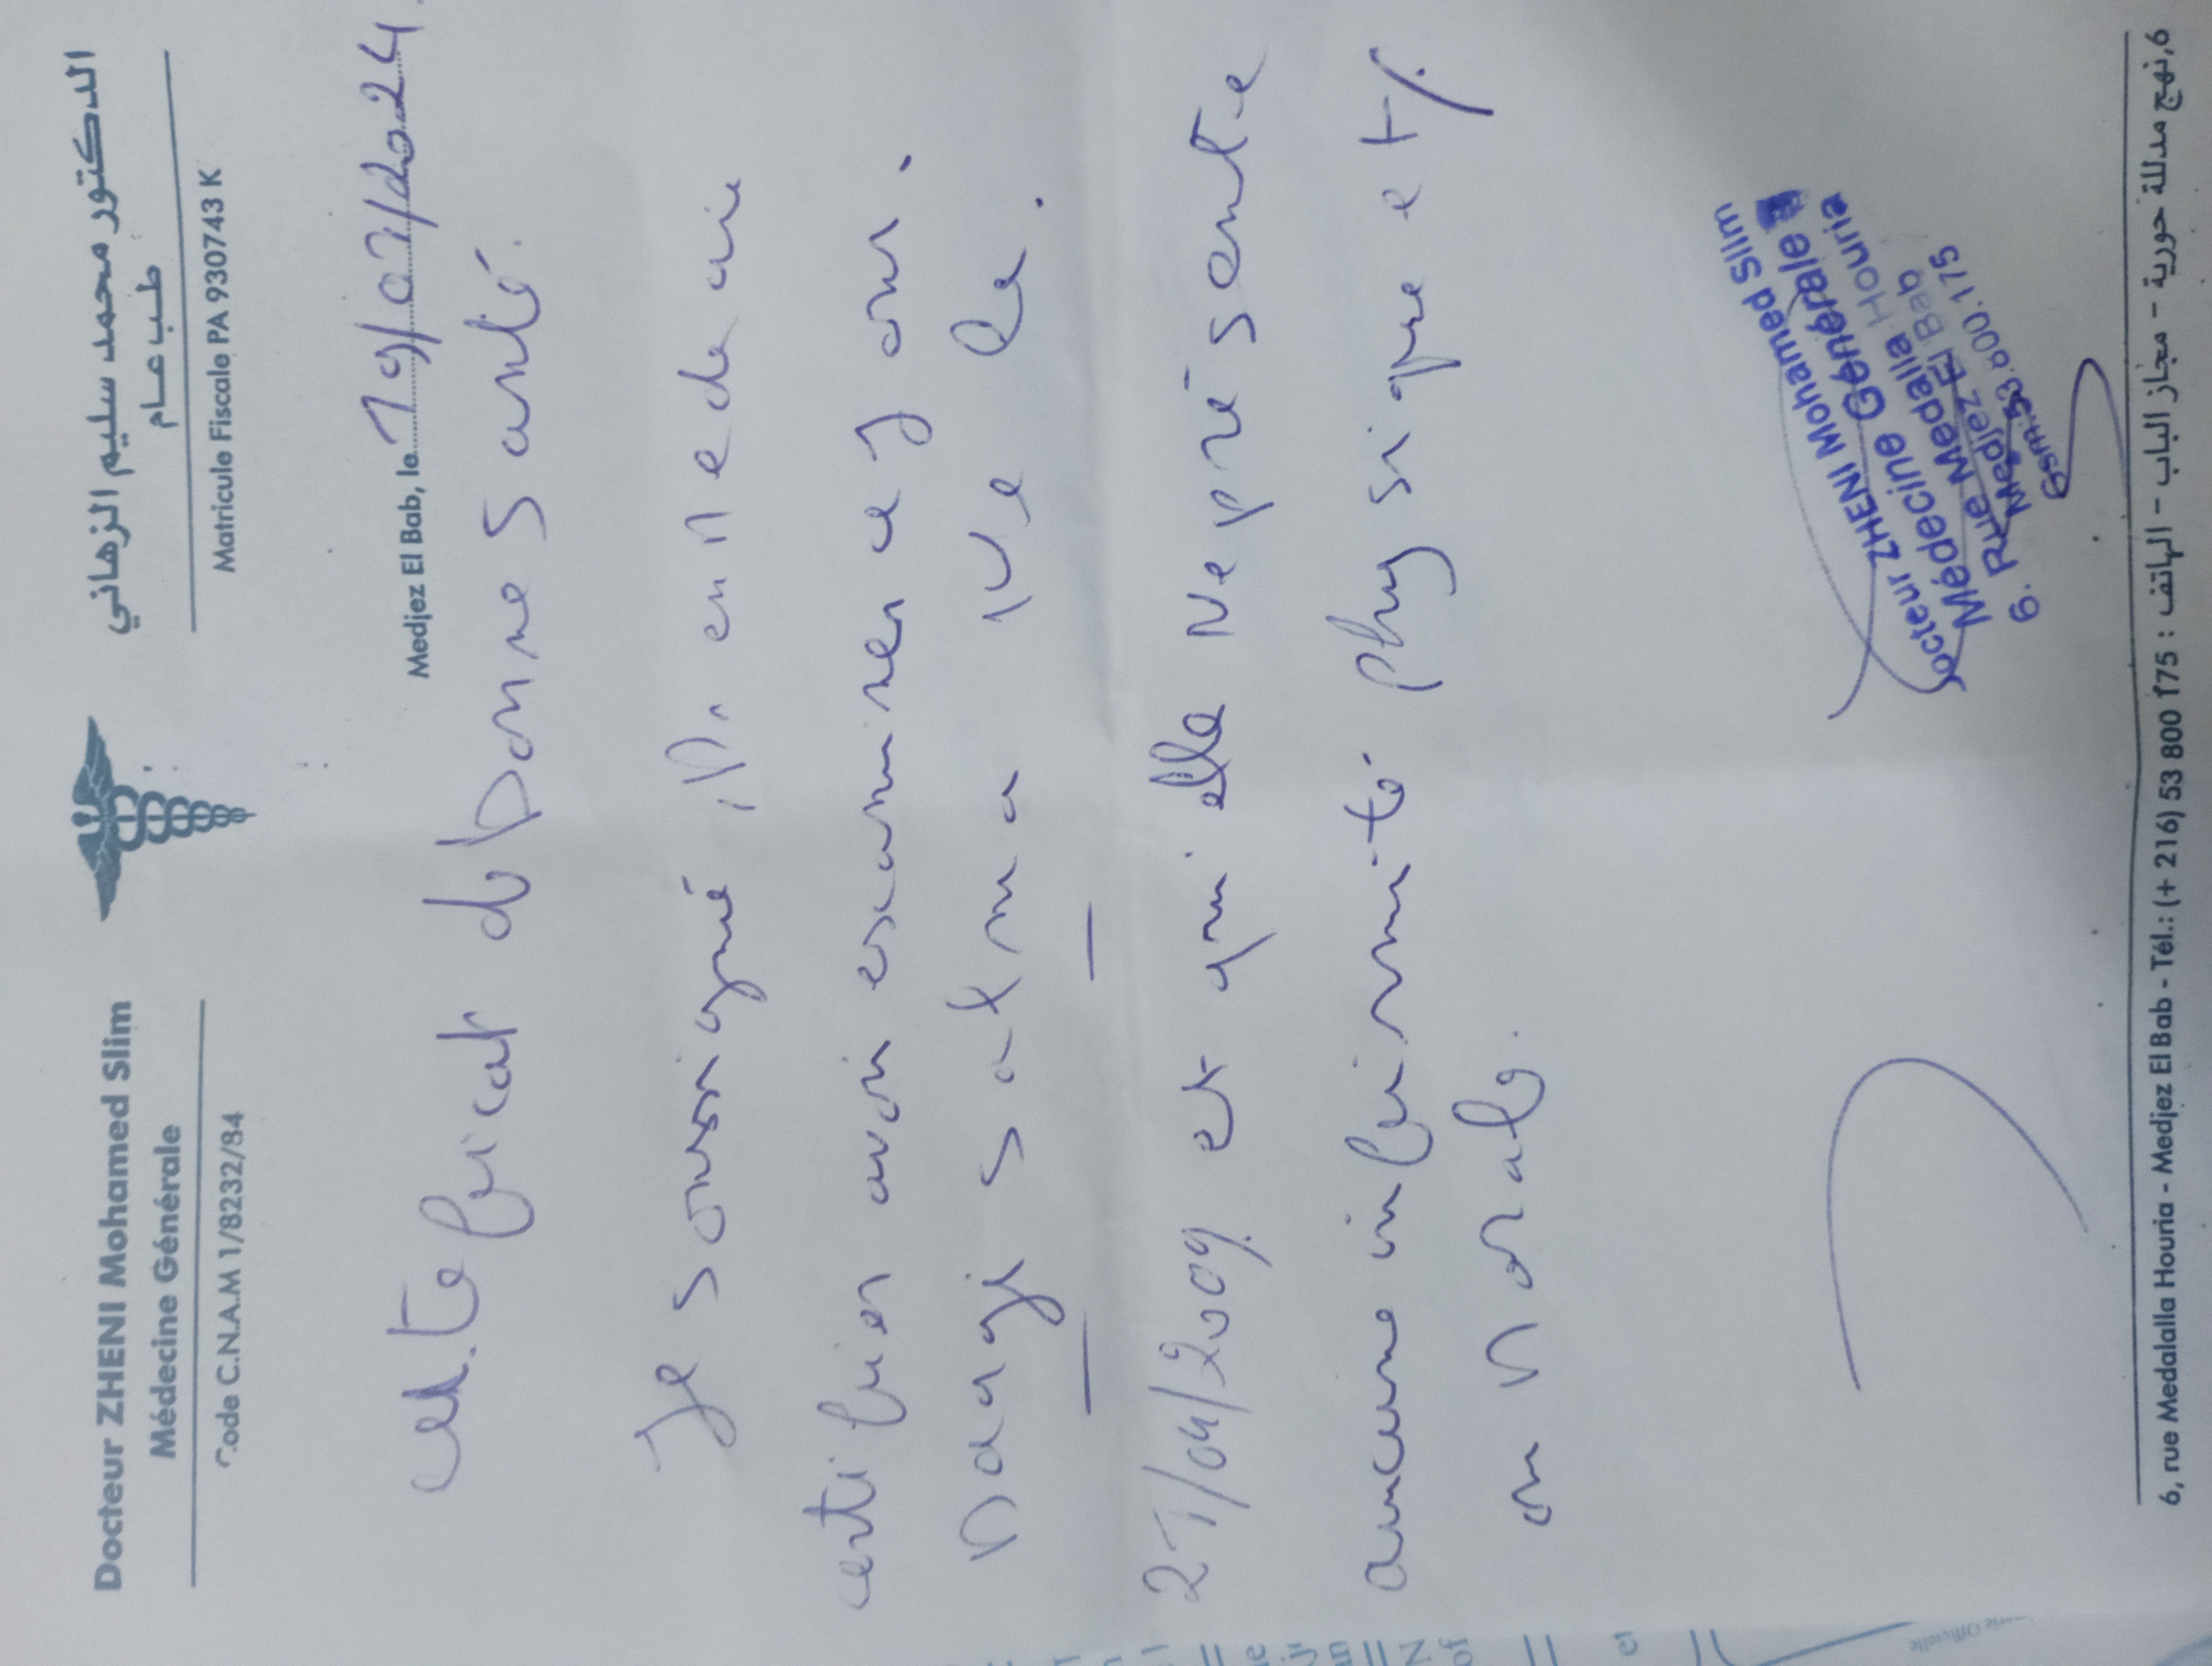 Docteur ZHENI Mohamed Slim
Médecine Générale
Code C.N.A.M 1/8232/84
الدكتور محمد سليم الزهاني
طب عام
Matricule Fiscale PA 930743 K
Medjez El Bab, le 19/07/2024
Certificat de bonne santé.
Je soussigné, Dr en médecine
certifier avoir examiner ce jour.
salma Née le.
27/04/2009 et qui elle Ne présente
aucune infirmité physique et/
ou Morale.
Docteur ZHENI Mohamed Slim
Médecine Générale
6. Rue Medalla Houria
Medjez El Bab
Gsm: 53.800.175
6, rue Medalalla Houria - Medjez El Bab - Tél.: (+ 216) 53 800 175 : الهاتف - مجاز الباب - نهج مدللة حورية ,6